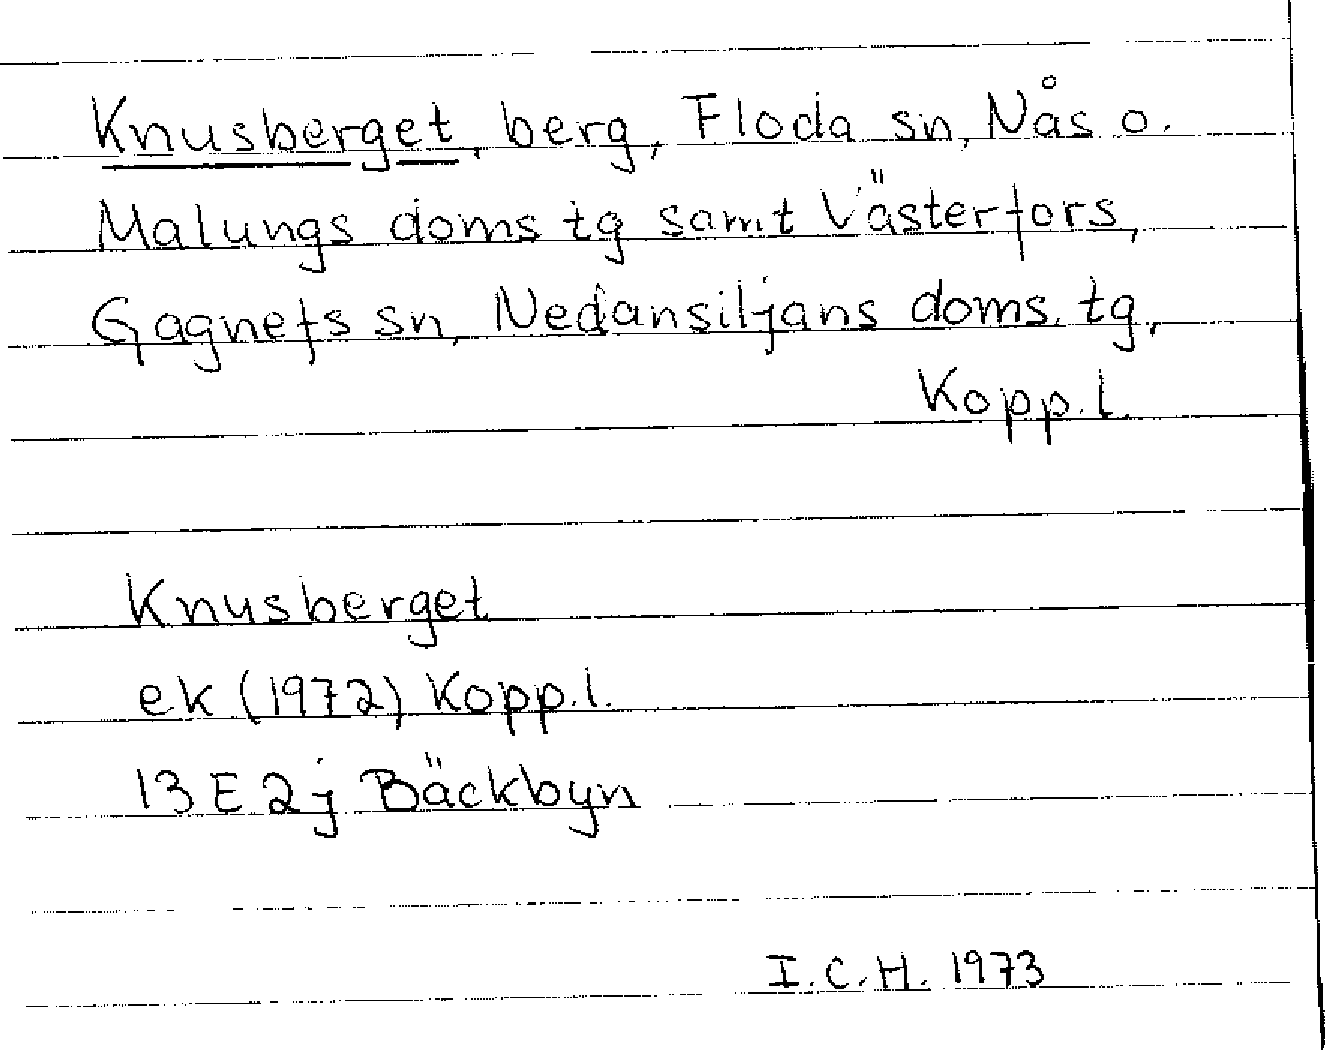 Knusberget, berg, Floda sn, Nås o.
Malungs doms tg samt Västerfors,
Gagnefs sn, Nedansiljans doms. tg,
Kopp. l.
Knusberget
ek (1972) Kopp. l.
13 E 2j Bäckbyn
I. C. H. 1973